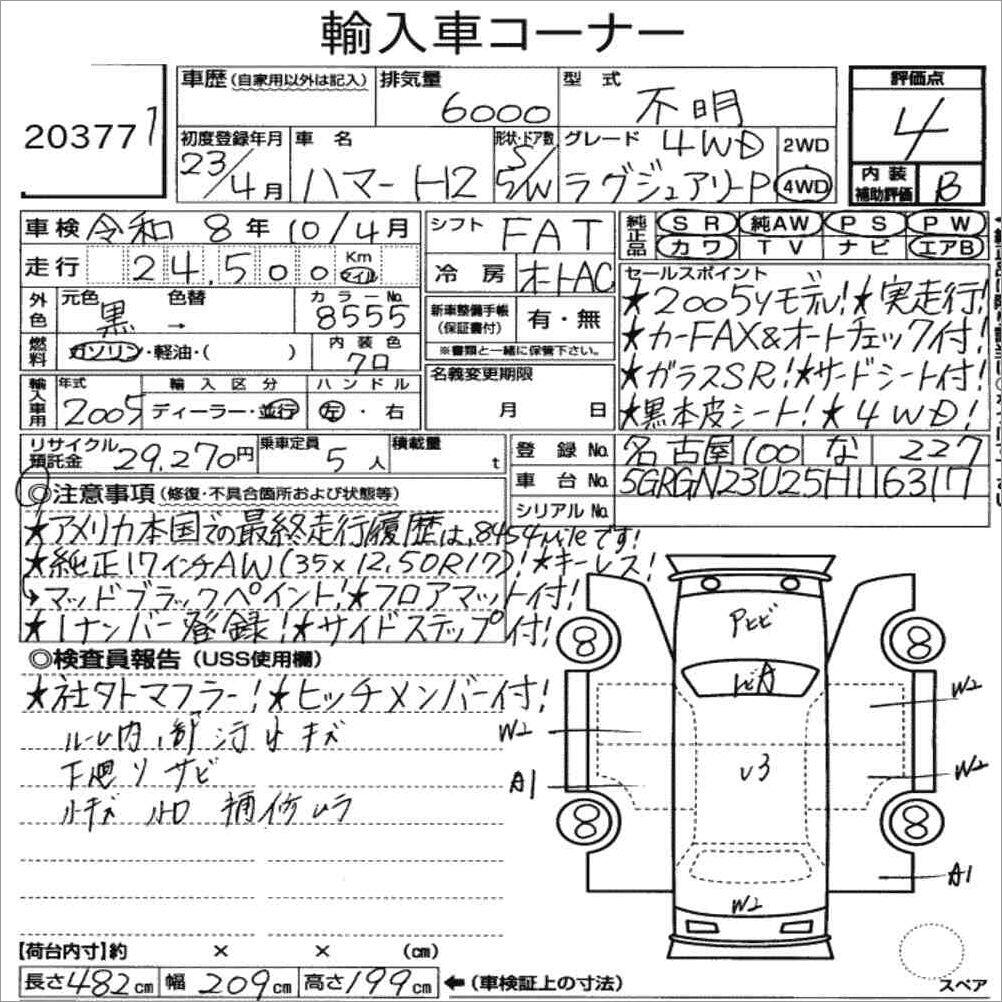 輸入車コーナー
20377 1
車歴(自家用以外は記入) 排気量 6000 型式 不明 評価点 4
初度登録年月 23/4月 車名 ハマー H2 形状・ドア数 5/5W グレード 4WD ラグジュアリーP 2WD 4WD 内装補助評価 B
車検 令和 8年 10/4月 シフト FAT 純正品 SR 純AW PS PW
走行 24,500 Km マイル 冷房 オートAC カワ TV ナビ エアB
外色 元色 黒 → 色替 カラーNo. 8555
新車整備手帳(保証書付) 有・無
※書類と一緒に保管下さい。
燃料 ガソリン・軽油・( ) 内装色 クロ
名義変更期限 月 日
輸入車用 年式 2005 輸入区分 ディーラー・並行 ハンドル 左・右
セールスポイント
★2005yモデル!★実走行!
★カーFAX&オートチェック付!
★ガラスSR!★サードシート付!
★黒本皮シート!★4WD!
リサイクル預託金 29,270円 乗車定員 5人 積載量 t
登録No. 名古屋 100 な 227
車台No. 5GRGN23U25H116317
シリアルNo.
◎注意事項(修復・不具合箇所および状態等)
★アメリカ本国での最終走行履歴は、8454mileです!
★純正17インチAW(35×12.50R17)!★キーレス!
→マッドブラックペイント!★フロアマット付!
★1ナンバー登録!★サイドステップ付!
◎検査員報告(USS使用欄)
★社外マフラー!★ヒッチメンバー付!
ルーム内、汚れ キズ
下廻り サビ
補修ムラ
Aヒビ
W2
W2
W2
A1
U3
A1
W2
8
8
8
8
スペア
【荷台内寸】約 × × (cm)
長さ 482cm 幅 209cm 高さ 199cm ←(車検証上の寸法)